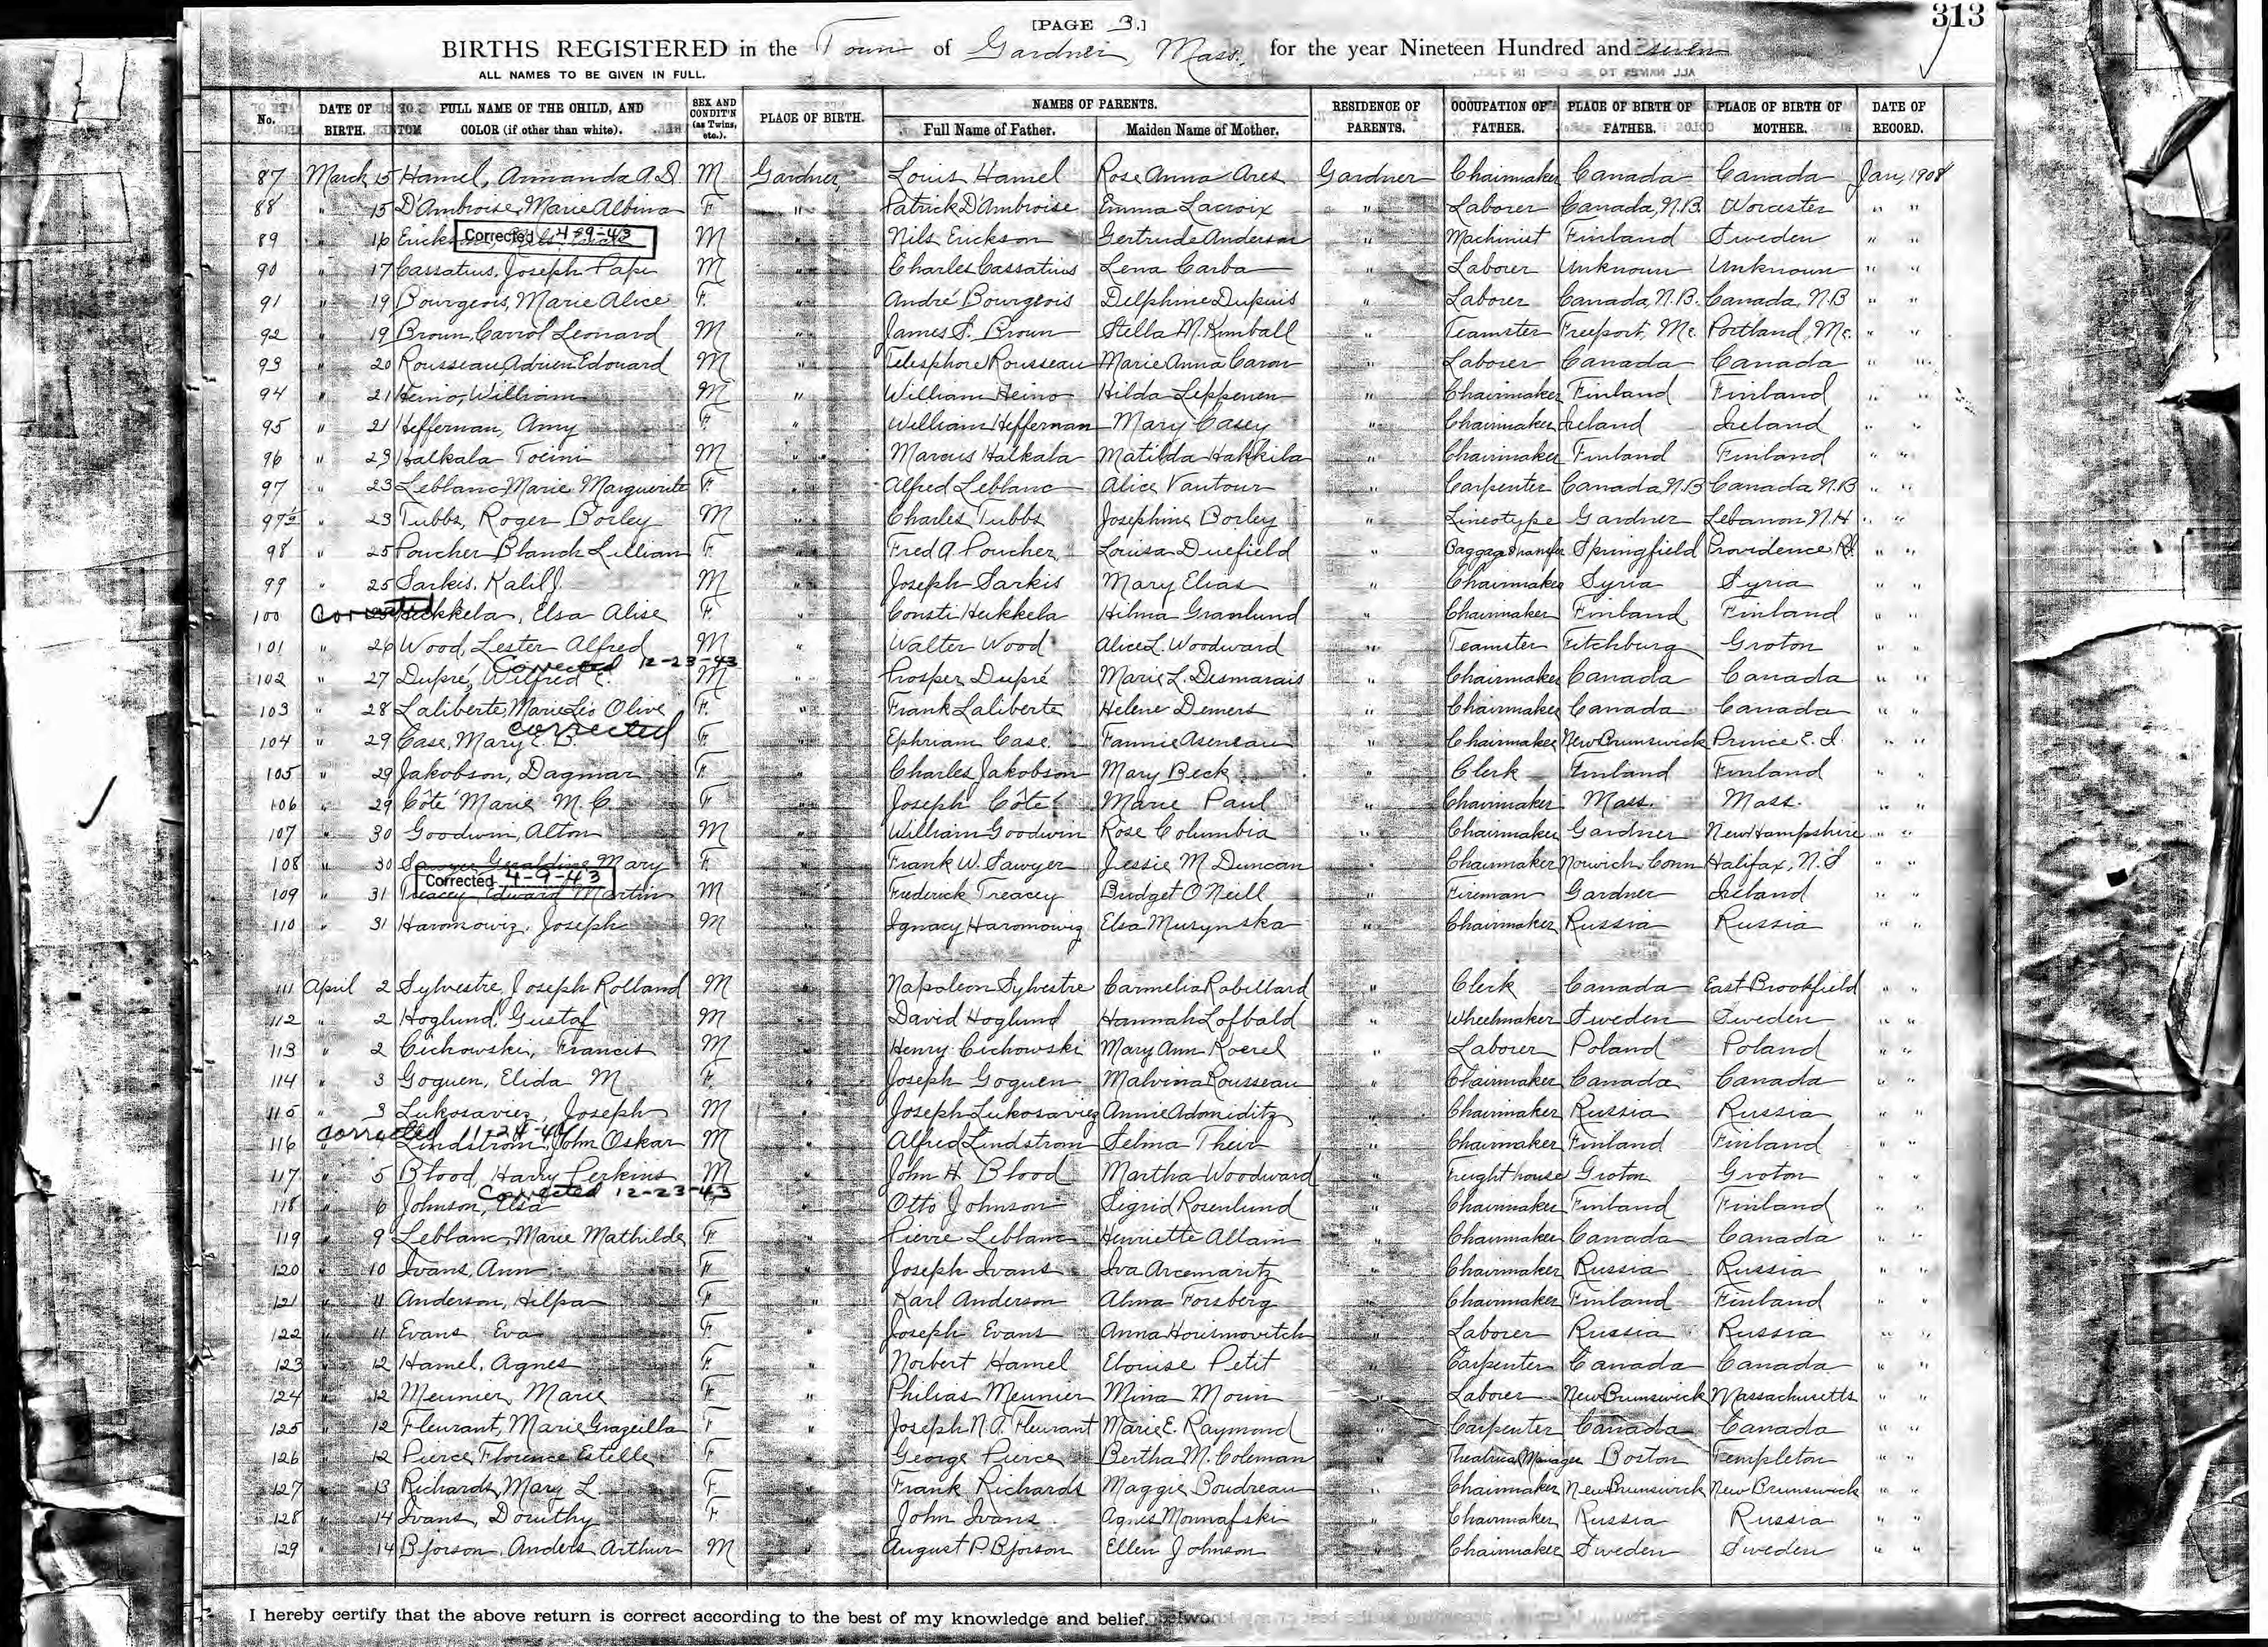 [PAGE 3.]
313
BIRTHS REGISTERED in the Town of Gardner, Mass., for the year Nineteen Hundred and seven
ALL NAMES TO BE GIVEN IN FULL.
No. DATE OF BIRTH. FULL NAME OF THE CHILD, AND COLOR (if other than white). SEX AND CONDIT'N (as Twins, etc.). PLACE OF BIRTH. NAMES OF PARENTS. Full Name of Father. Maiden Name of Mother. RESIDENCE OF PARENTS. OCCUPATION OF FATHER. PLACE OF BIRTH OF FATHER. PLACE OF BIRTH OF MOTHER. DATE OF RECORD.
87 March 15 Hamel, Armanda A.D. M Gardner Louis Hamel Rose Anna Ares Gardner Chairmaker Canada Canada Jan, 1908
88 " 15 D'Ambroise, Marie Albina F. " Patrick D'Ambroise Emma Lacroix " Laborer Canada, N.B. Worcester " "
89 " 16 Erickson Corrected 4-9-43 M " Nils Erickson Gertrude Anderson " Machinist Finland Sweden " "
90 " 17 Cassatius, Joseph Pape M " Charles Cassatius Lena Carba " Laborer Unknown Unknown " "
91 " 19 Bourgeois, Marie Alice F. " André Bourgeois Delphine Dupuis " Laborer Canada, N.B. Canada, N.B " "
92 " 19 Brown, Carrol Leonard M " James S. Brown Stella M. Kimball " Teamster Freeport, Me. Portland, Me. " "
93 " 20 Rousseau, Adrien Edouard M " Telesphore Rousseau Marie Anna Caron " Laborer Canada Canada " "
94 " 21 Heino, William M " William Heino Hilda Leppenen " Chairmaker Finland Finland " "
95 " 21 Heffernan, Amy F " William Heffernan Mary Casey " Chairmaker Ireland Ireland " "
96 " 23 Halkala Toeini M " Marcus Halkala Matilda Hakkila " Chairmaker Finland Finland " "
97 " 23 Leblanc, Marie Marguerite F. " Alfred Leblanc Alice Vautour " Carpenter Canada N.B Canada N.B " "
97½ " 23 Tubbs, Roger Borley M " Charles Tubbs Josephine Borley " Lineotype Gardner Lebanon N.H " "
98 " 25 Poucher Blanch Lillian F. " Fred A Poucher Louisa Duefield " Baggage transfer Springfield Providence R.I. " "
99 " 25 Sarkis, Kalil J. M " Joseph Sarkis Mary Elias " Chairmaker Syria Syria " "
100 Corrected Heikkela, Elsa Alise F. " Consti Heikkela Hilma Granlund " Chairmaker Finland Finland " "
101 " 26 Wood, Lester Alfred M " Walter Wood Alice L. Woodward " Teamster Fitchburg Groton " "
Corrected 12-23-43
102 " 27 Dupré, Wilfred E. M " Prosper Dupré Marie L. Desmarais " Chairmaker Canada Canada " "
103 " 28 Laliberte, Marie Leo Olive F. " Frank Laliberte Helene Demers " Chairmaker Canada Canada " "
corrected
104 " 29 Case, Mary E. B. F. " Ephriam Case Fannie Aseneau " Chairmaker New Brunswick Prince E. I. " "
105 " 29 Jakobson, Dagmar F. " Charles Jakobson Mary Beck " Clerk Finland Finland " "
106 " 29 Côté Marie M. C. F " Joseph Côté Marie Paul " Chairmaker Mass. Mass. " "
107 " 30 Goodwin, Alton M " William Goodwin Rose Columbia " Chairmaker Gardner New Hampshire " "
108 " 30 Sawyer Geraldine Mary F. " Frank W. Sawyer Jessie M Duncan " Chairmaker Norwich Conn Halifax, N.S " "
Corrected 4-9-43
109 " 31 Treacey, Edward Martin M " Frederick Treacey Bridget O'Neill " Fireman Gardner Ireland " "
110 " 31 Haromowiz, Joseph M " Ignacy Haromowig Elsa Musynska " Chairmaker Russia Russia " "
111 April 2 Sylvestre, Joseph Rolland M " Napoleon Sylvestre Carmelia Robillard " Clerk Canada East Brookfield " "
112 " 2 Hoglund, Gustaf M " David Hoglund Hannah Lofbald " Wheelmaker Sweden Sweden " "
113 " 2 Cichowski, Francis M " Henry Cichowski Mary Ann Koerel " Laborer Poland Poland " "
114 " 3 Goguen, Elida M F. " Joseph Goguen Malvina Rousseau " Chairmaker Canada Canada " "
115 " 3 Lukosaviez, Joseph M " Joseph Lukosaviez Annie Adomiditz " Chairmaker Russia Russia " "
corrected
116 Lindstrom, John Oskar M " Alfred Lindstrom Selma Their " Chairmaker Finland Finland " "
117 " 5 Blood, Harry Perkins M " John H. Blood Martha Woodward " Freight house Groton Groton " "
Corrected 12-23-43
118 " 6 Johnson, Elsa F " Otto Johnson Sigrid Rosenlund " Chairmaker Finland Finland " "
119 " 9 Leblanc, Marie Mathilde F " Pierre Leblanc Henriette Allain " Chairmaker Canada Canada " "
120 " 10 Ivans, Ann F " Joseph Ivans Iva Arcemaritz " Chairmaker Russia Russia " "
121 " 11 Anderson, Hilpa F " Karl Anderson Alma Forsberg " Chairmaker Finland Finland " "
122 " 11 Evans Eva F. " Joseph Evans Anna Horismovitch " Laborer Russia Russia " "
123 " 12 Hamel, Agnes F. " Norbert Hamel Elouise Petit " Carpenter Canada Canada " "
124 " 12 Meunier, Marie F. " Philias Meunier Mina Morin " Laborer New Brunswick Massachusetts " "
125 " 12 Fleurant, Marie Grazeilla F " Joseph N. A. Fleurant Marie E. Raymond " Carpenter Canada Canada " "
126 " 12 Pierce, Florence Estelle F " George Pierce Bertha M. Coleman " Theatrical Manager Boston Templeton " "
127 " 13 Richards, Mary L. F. " Frank Richards Maggie Boudreau " Chairmaker New Brunswick New Brunswick " "
128 " 14 Ivans, Dorothy F " John Ivans Agnes Monnafski " Chairmaker Russia Russia " "
129 " 14 Bjorson, Anders Arthur M " August P Bjorson Ellen Johnson " Chairmaker Sweden Sweden " "
I hereby certify that the above return is correct according to the best of my knowledge and belief.